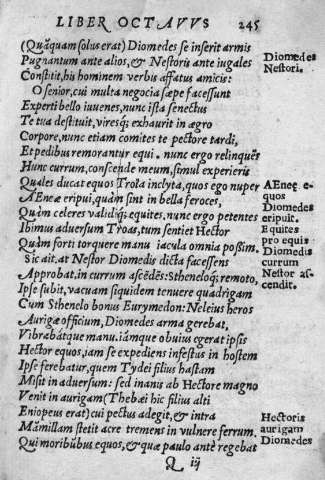 LIBER OCTAVVS 245
(Quãquam solus erat) Diomedes se inserit armis
Pugnantum ante alios, & Nestoris ante iugales
Constitit, his hominem verbis affatus amicis:
O senior, cui multa negocia sæpe facessunt
Experti bello iuuenes, nunc ista senectus
Te tua destituit, viresq; exhaurit in ægro
Corpore, nunc etiam comites te pectore tardi,
Et pedibus remorantur equi. nunc ergo relinquẽs
Hunc currum, conscende meum, simul experieris
Quales ducat equos Troia inclyta, quos ego nuper
AEneæ eripui, quàm sint in bella feroces,
Quàm celeres validiq; equites, nunc ergo petentes
Ibimus aduersum Troas, tum sentiet Hector
Quàm forti torquere manu iacula omnia poßim.
Sic ait, at Nestor Diomedis dicta facessens
Approbat, in currum ascẽdẽs: Sthenelоq; remoto,
Ipse subit, vacuam siquidem tenuere quadrigam
Cum Sthenelo bonus Eurymedon: Neleius heros
Aurigæ officium, Diomedes arma gerebat,
Vibrabátque manu. iámque obuius egerat ipsis
Hector equos, iam se expediens infestus in hostem
Ipse ferebatur, quem Tydei filius hastam
Misit in aduersum: sed inanis ab Hectore magno
Venit in aurigam (Thebæi hic filius alti
Eniopeus erat) cui pectus adegit, & intra
Mãmillam stetit acre tremens in vulnere ferrum,
Qui moribũdus equos, & quæ paulo antè regebat
Q iij
Diomedes
Nestori.
AEneę e-
quos
Diomedes
eripuit.
Equites
pro equis
Diomedis
currum
Nestor as-
cendit.
Hectoris
aurigam
Diomedes